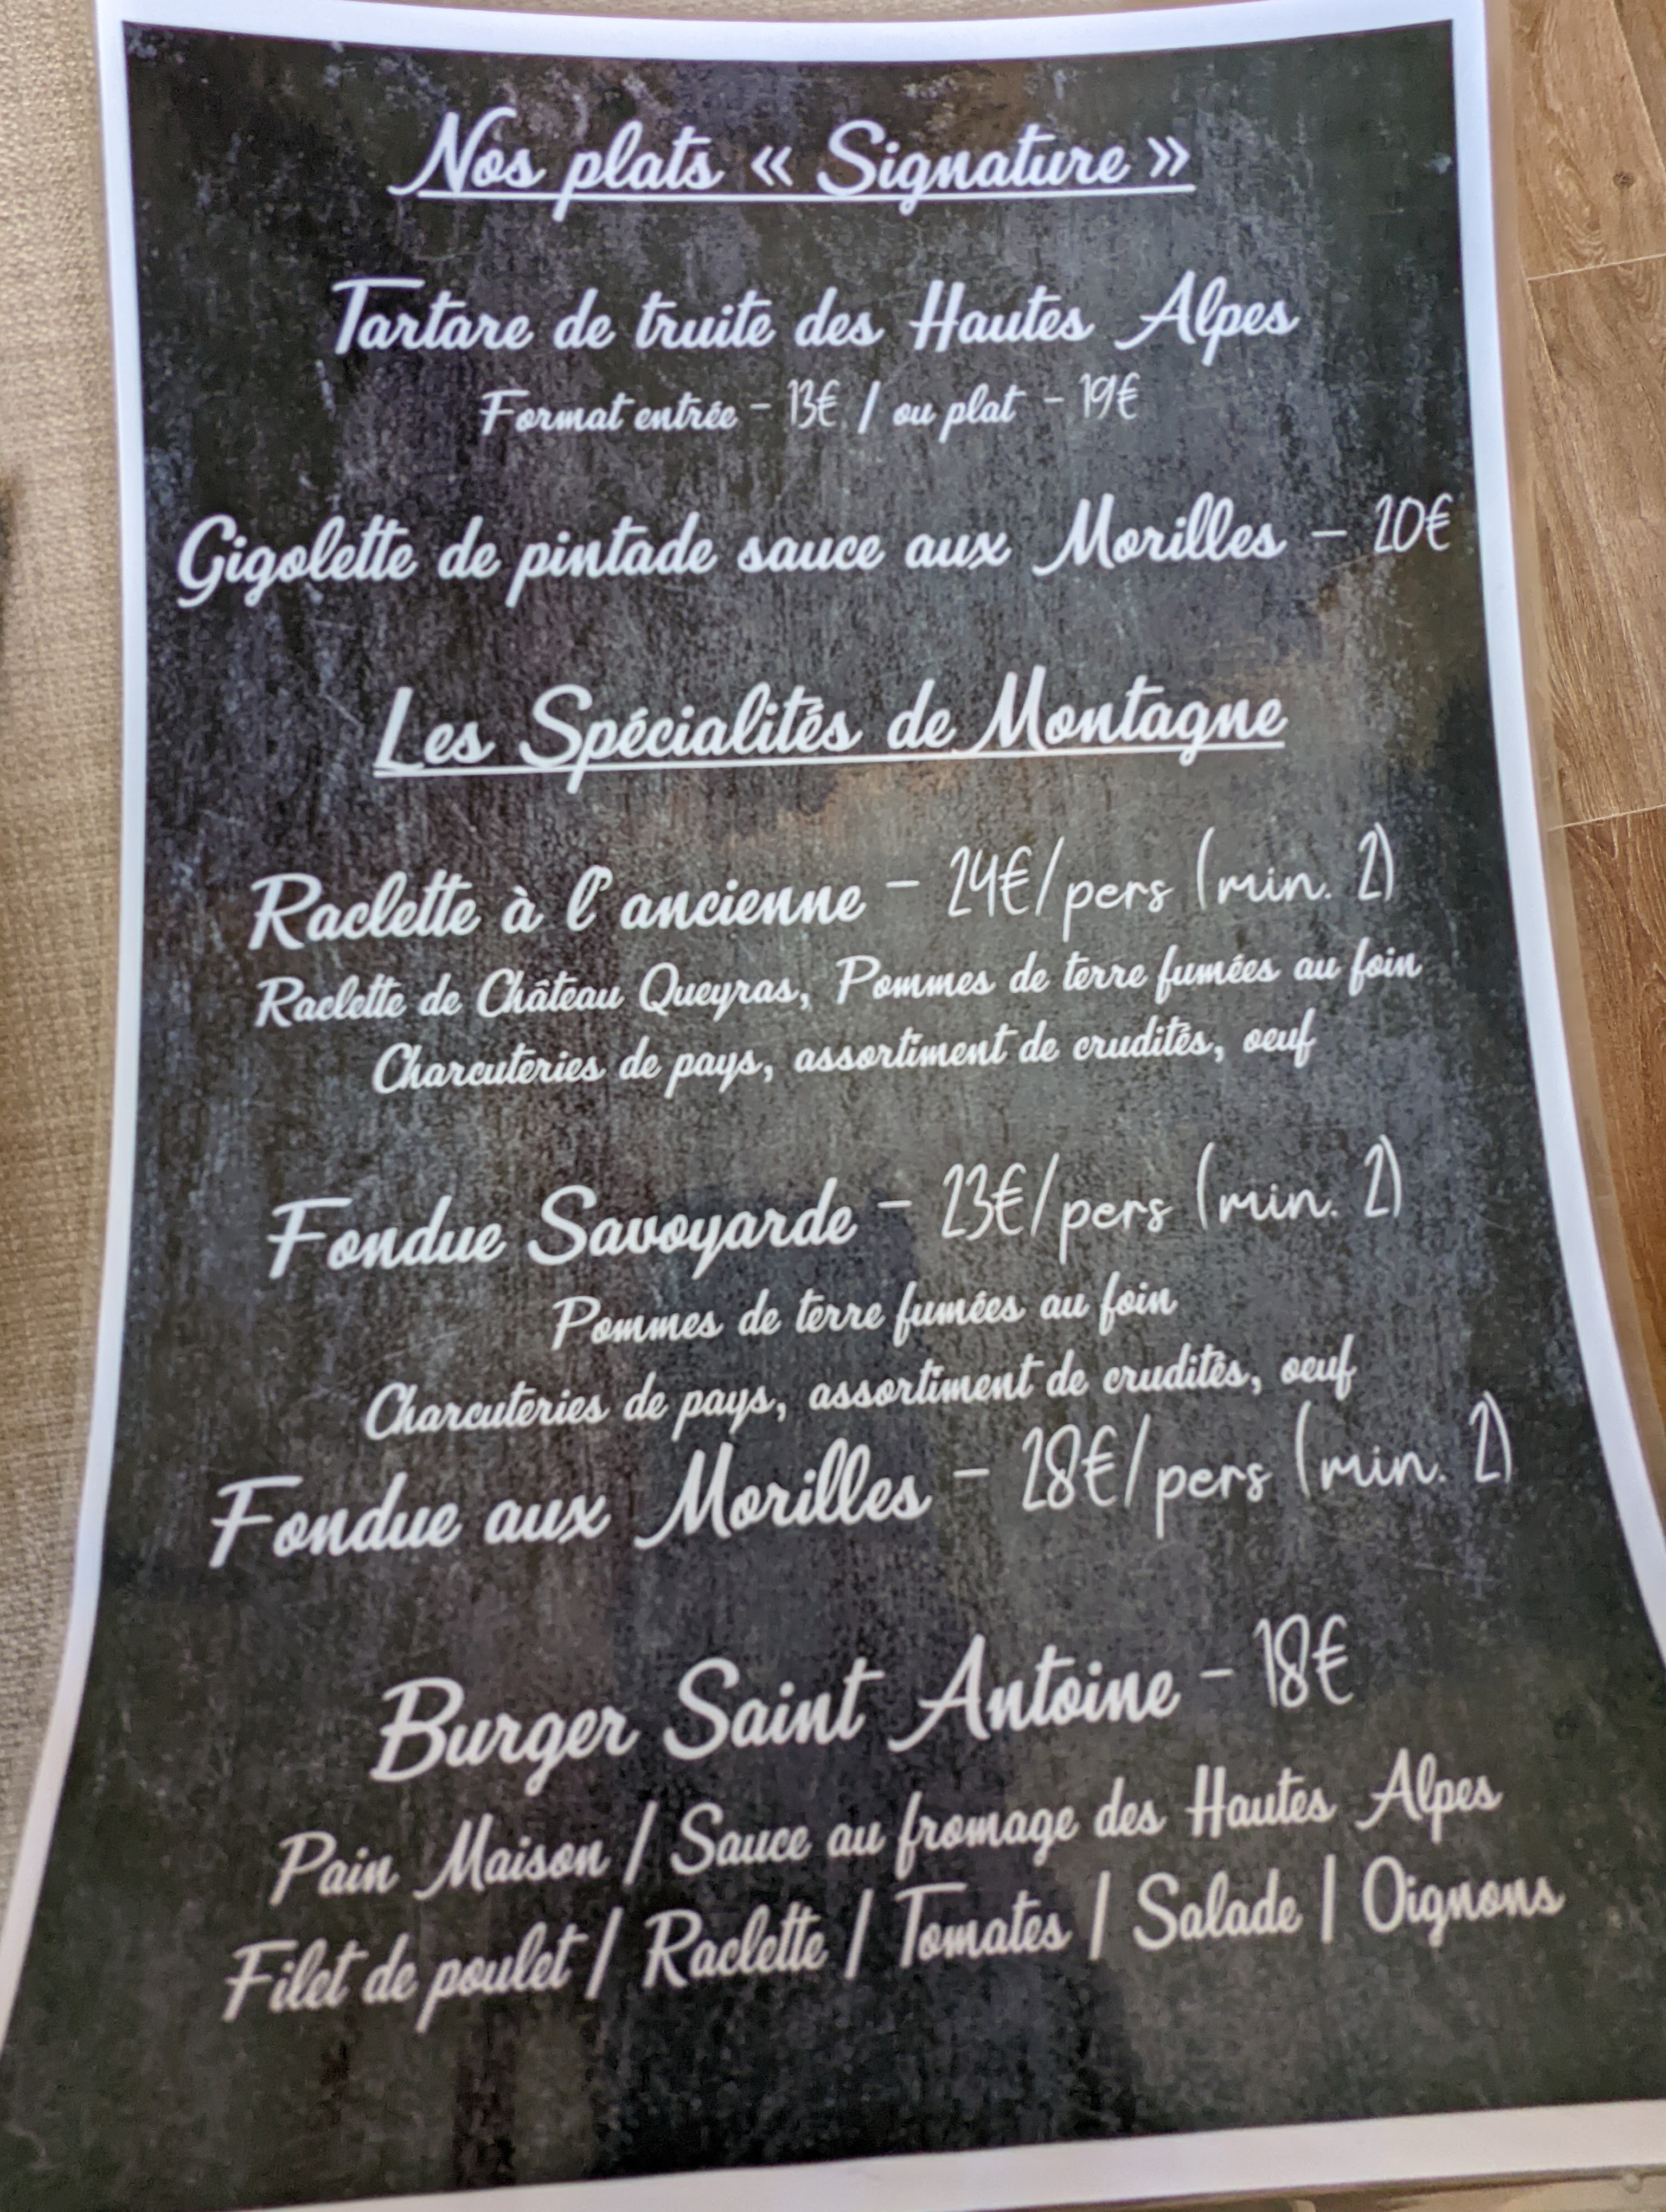 Nos plats « Signature »
Tartare de truite des Hautes Alpes
Format entrée - 13€ / ou plat - 19€
Gigolette de pintade sauce aux Morilles - 20€
Les Spécialités de Montagne
Raclette à l'ancienne - 24€/pers (min. 2)
Raclette de Château Queyras, Pommes de terre fumées au foin
Charcuteries de pays, assortiment de crudités, oeuf
Fondue Savoyarde - 23€/pers (min. 2)
Pommes de terre fumées au foin
Charcuteries de pays, assortiment de crudités, oeuf
Fondue aux Morilles - 28€/pers (min. 2)
Burger Saint Antoine - 18€
Pain Maison / Sauce au fromage des Hautes Alpes
Filet de poulet / Raclette / Tomates / Salade / Oignons